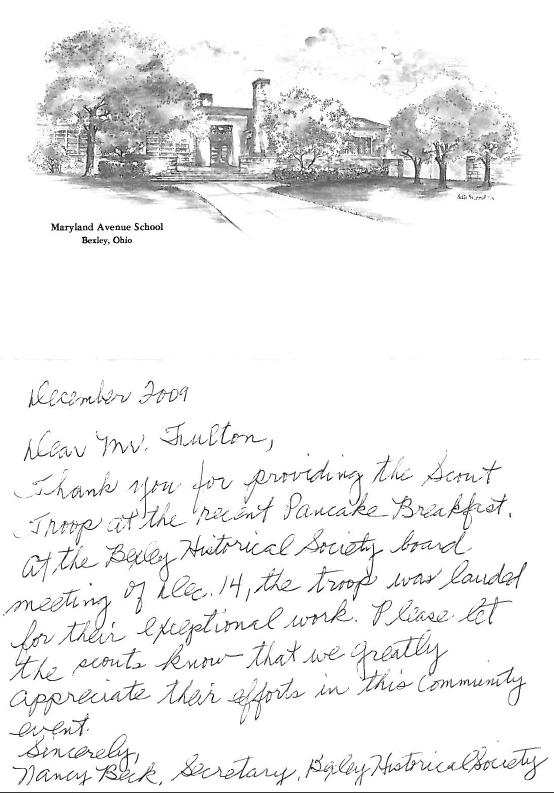 Maryland Avenue School
Bexley, Ohio
December 2009
Dear Mr. Fulton,
Thank you for providing the Scout
Troop at the recent Pancake Breakfast.
At the Bexley Historical Society board
meeting of Dec. 14, the troop was lauded
for their exceptional work. Please let
the scouts know that we greatly
appreciate their efforts in this community
event.
Sincerely,
Nancy Beck, Secretary, Bexley Historical Society